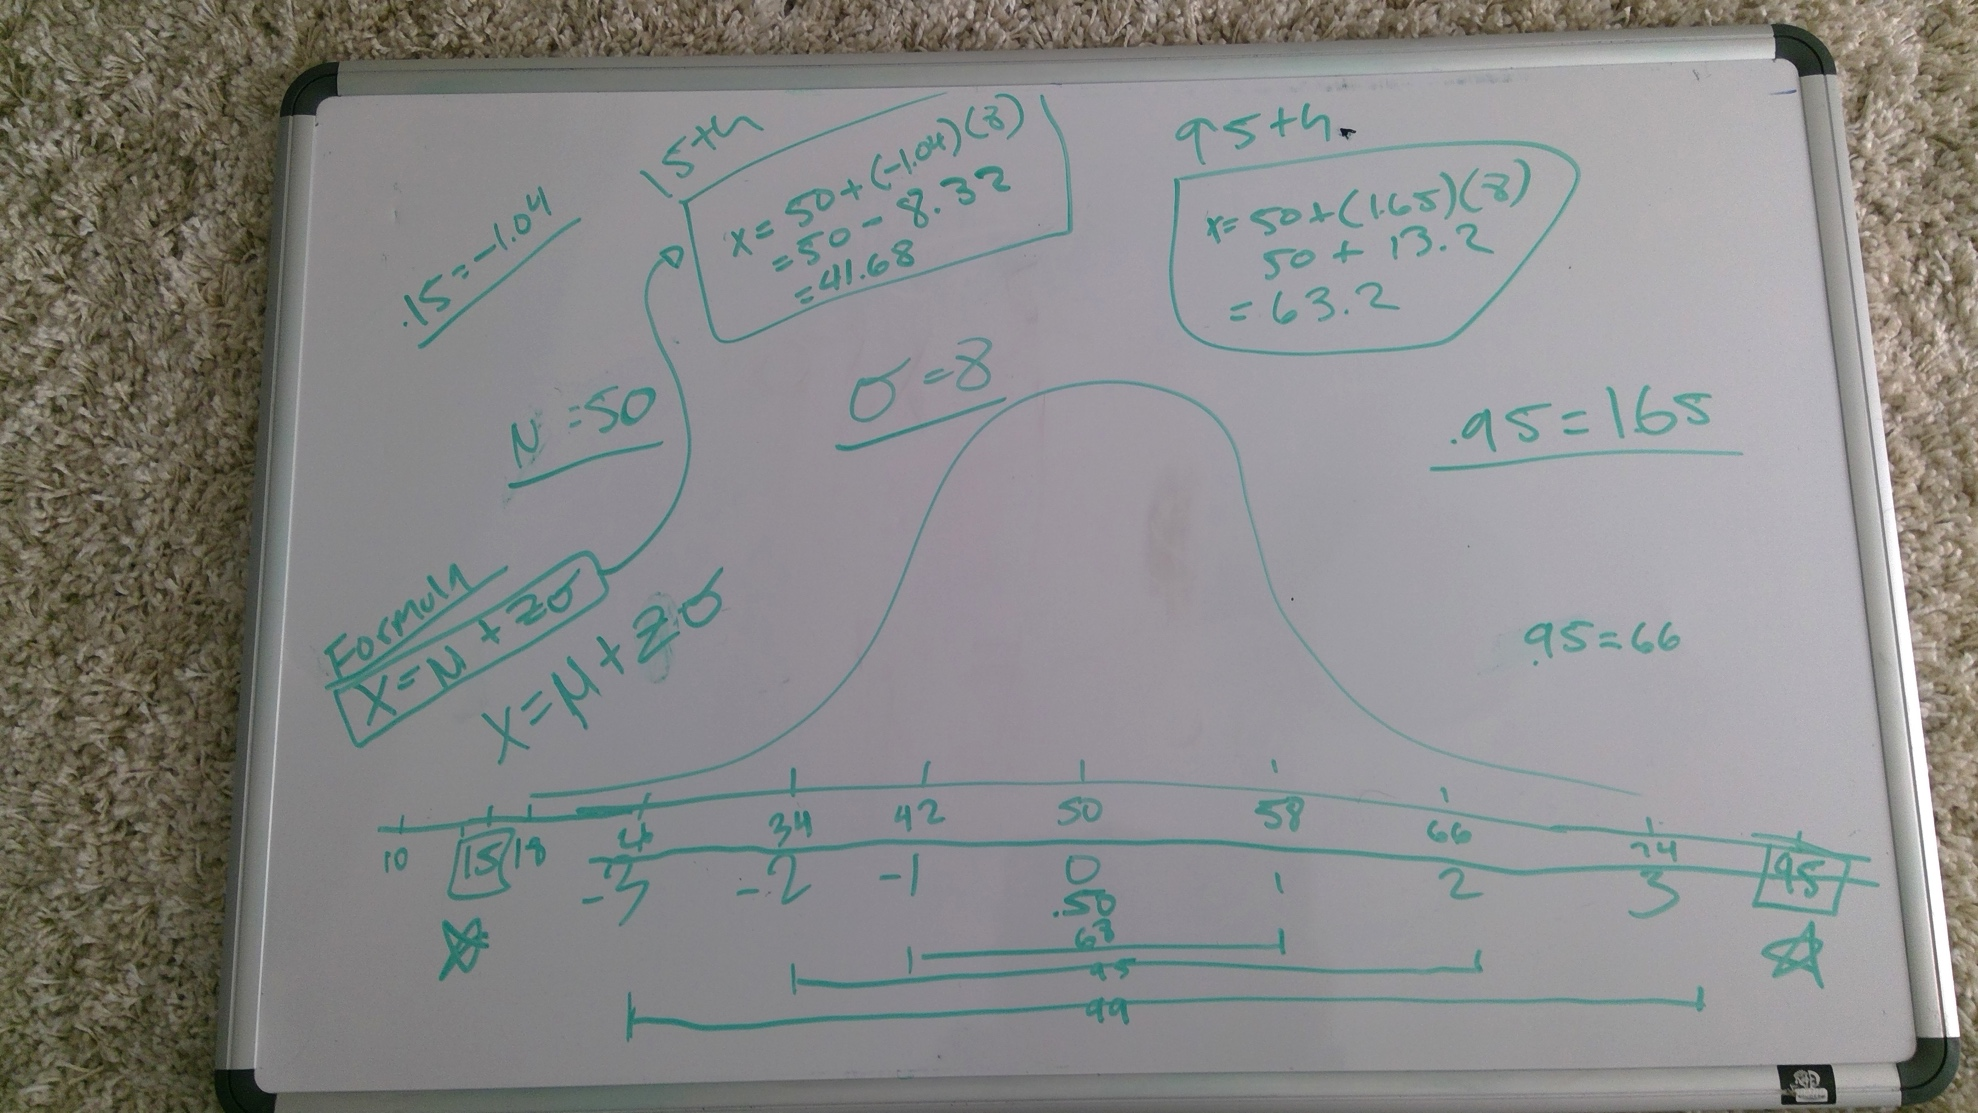 15th
x = 50 + (-1.04)(8)
= 50 - 8.32
= 41.68
95th.
x = 50 + (1.65)(8)
50 + 13.2
= 63.2
.15 = -1.04
σ = 8
μ = 50
.95 = 1.65
Formula
X = μ + zσ
X = μ + zσ
.95 = 66
10 15 18 34 42 50 58 66 74 95
-3 -2 -1 0 1 2 3
.50
68
95
99